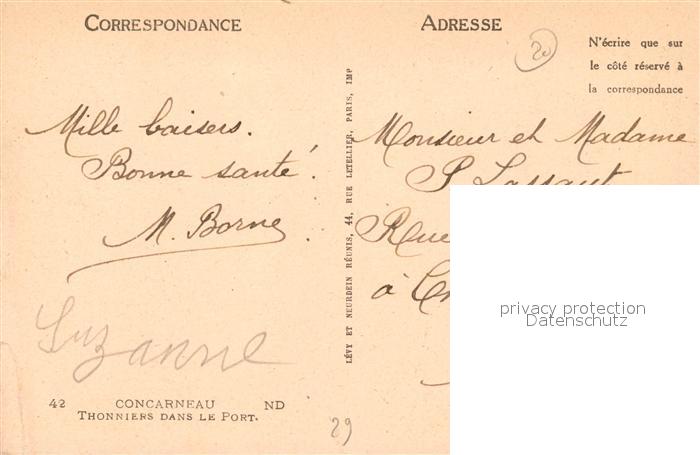 CORRESPONDANCE
ADRESSE
20
N'écrire que sur
le côté réservé à
la correspondance
Mille baisers.
Bonne santé!
M. Borne
Suzanne
42 CONCARNEAU ND
THONNIERS DANS LE PORT.
LÉVY ET NEURDEIN RÉUNIS, 44, RUE LETELLIER, PARIS, IMP
Monsieur et Madame
P
Rue
à
29
privacy protection
Datenschutz